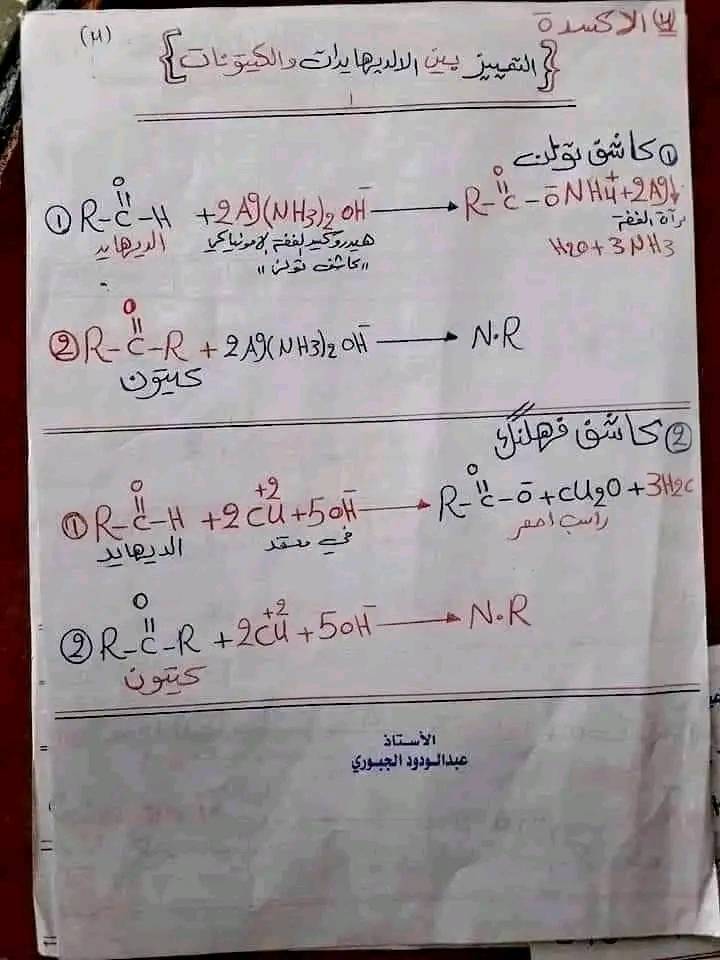 (٣) الاكسدة
(٣)
{التمييز بين الالديهايدات والكيتونات}
① كاشف تولن
O O
① R-C-H +2Ag(NH3)2OH⁻ → R-C-ŌNH4⁺+2Ag↓
الديهايد هيدروكسيد الفضة الامونياكي مرآة الفضة
"كاشف تولن" H2O+3NH3
O
② R-C-R + 2Ag(NH3)2OH⁻ → N.R
كيتون
② كاشف فهلنك
O +2 O
① R-C-H +2Cu+5OH⁻ → R-C-Ō+CU2O+3H2O
الديهايد في معقد راسب احمر
O +2
② R-C-R +2Cu+5OH⁻ → N.R
كيتون
الأستاذ
عبدالودود الجبوري